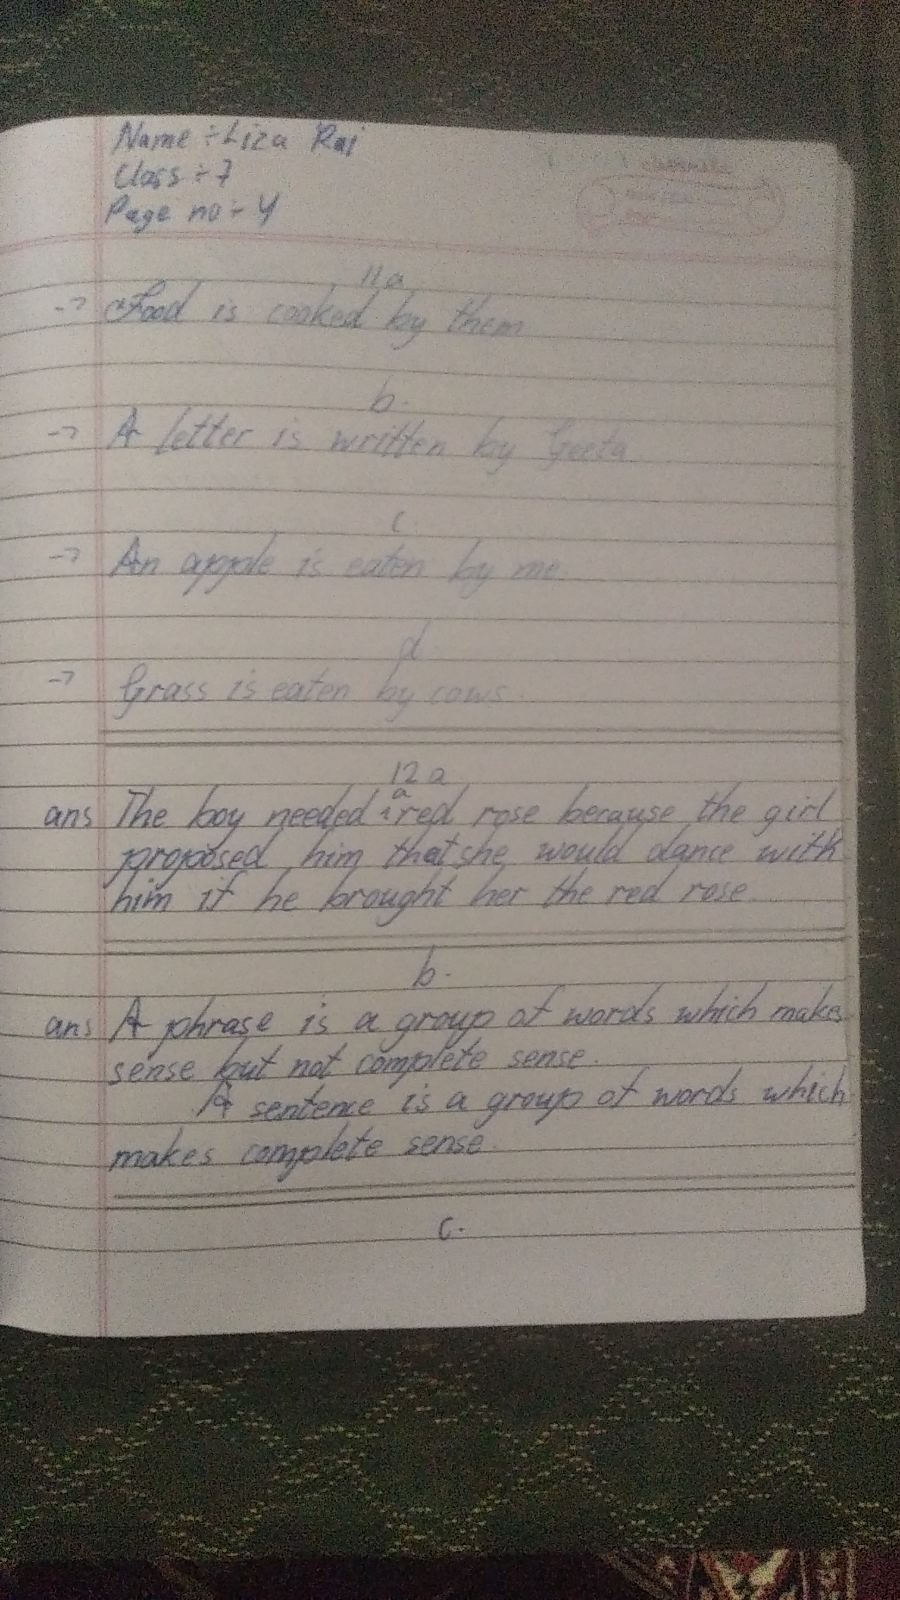 Name ÷ Liza Rai
Class ÷ 7
Page no ÷ 4
11 a
→ Food is cooked by them
b.
→ A letter is written by Geeta
c.
→ An apple is eaten by me.
d.
→ Grass is eaten by cows.
12 a
ans The boy needed a red rose because the girl
proposed him that she would dance with
him if he brought her the red rose.
b.
ans A phrase is a group of words which makes
sense but not complete sense.
A sentence is a group of words which
makes complete sense.
c.